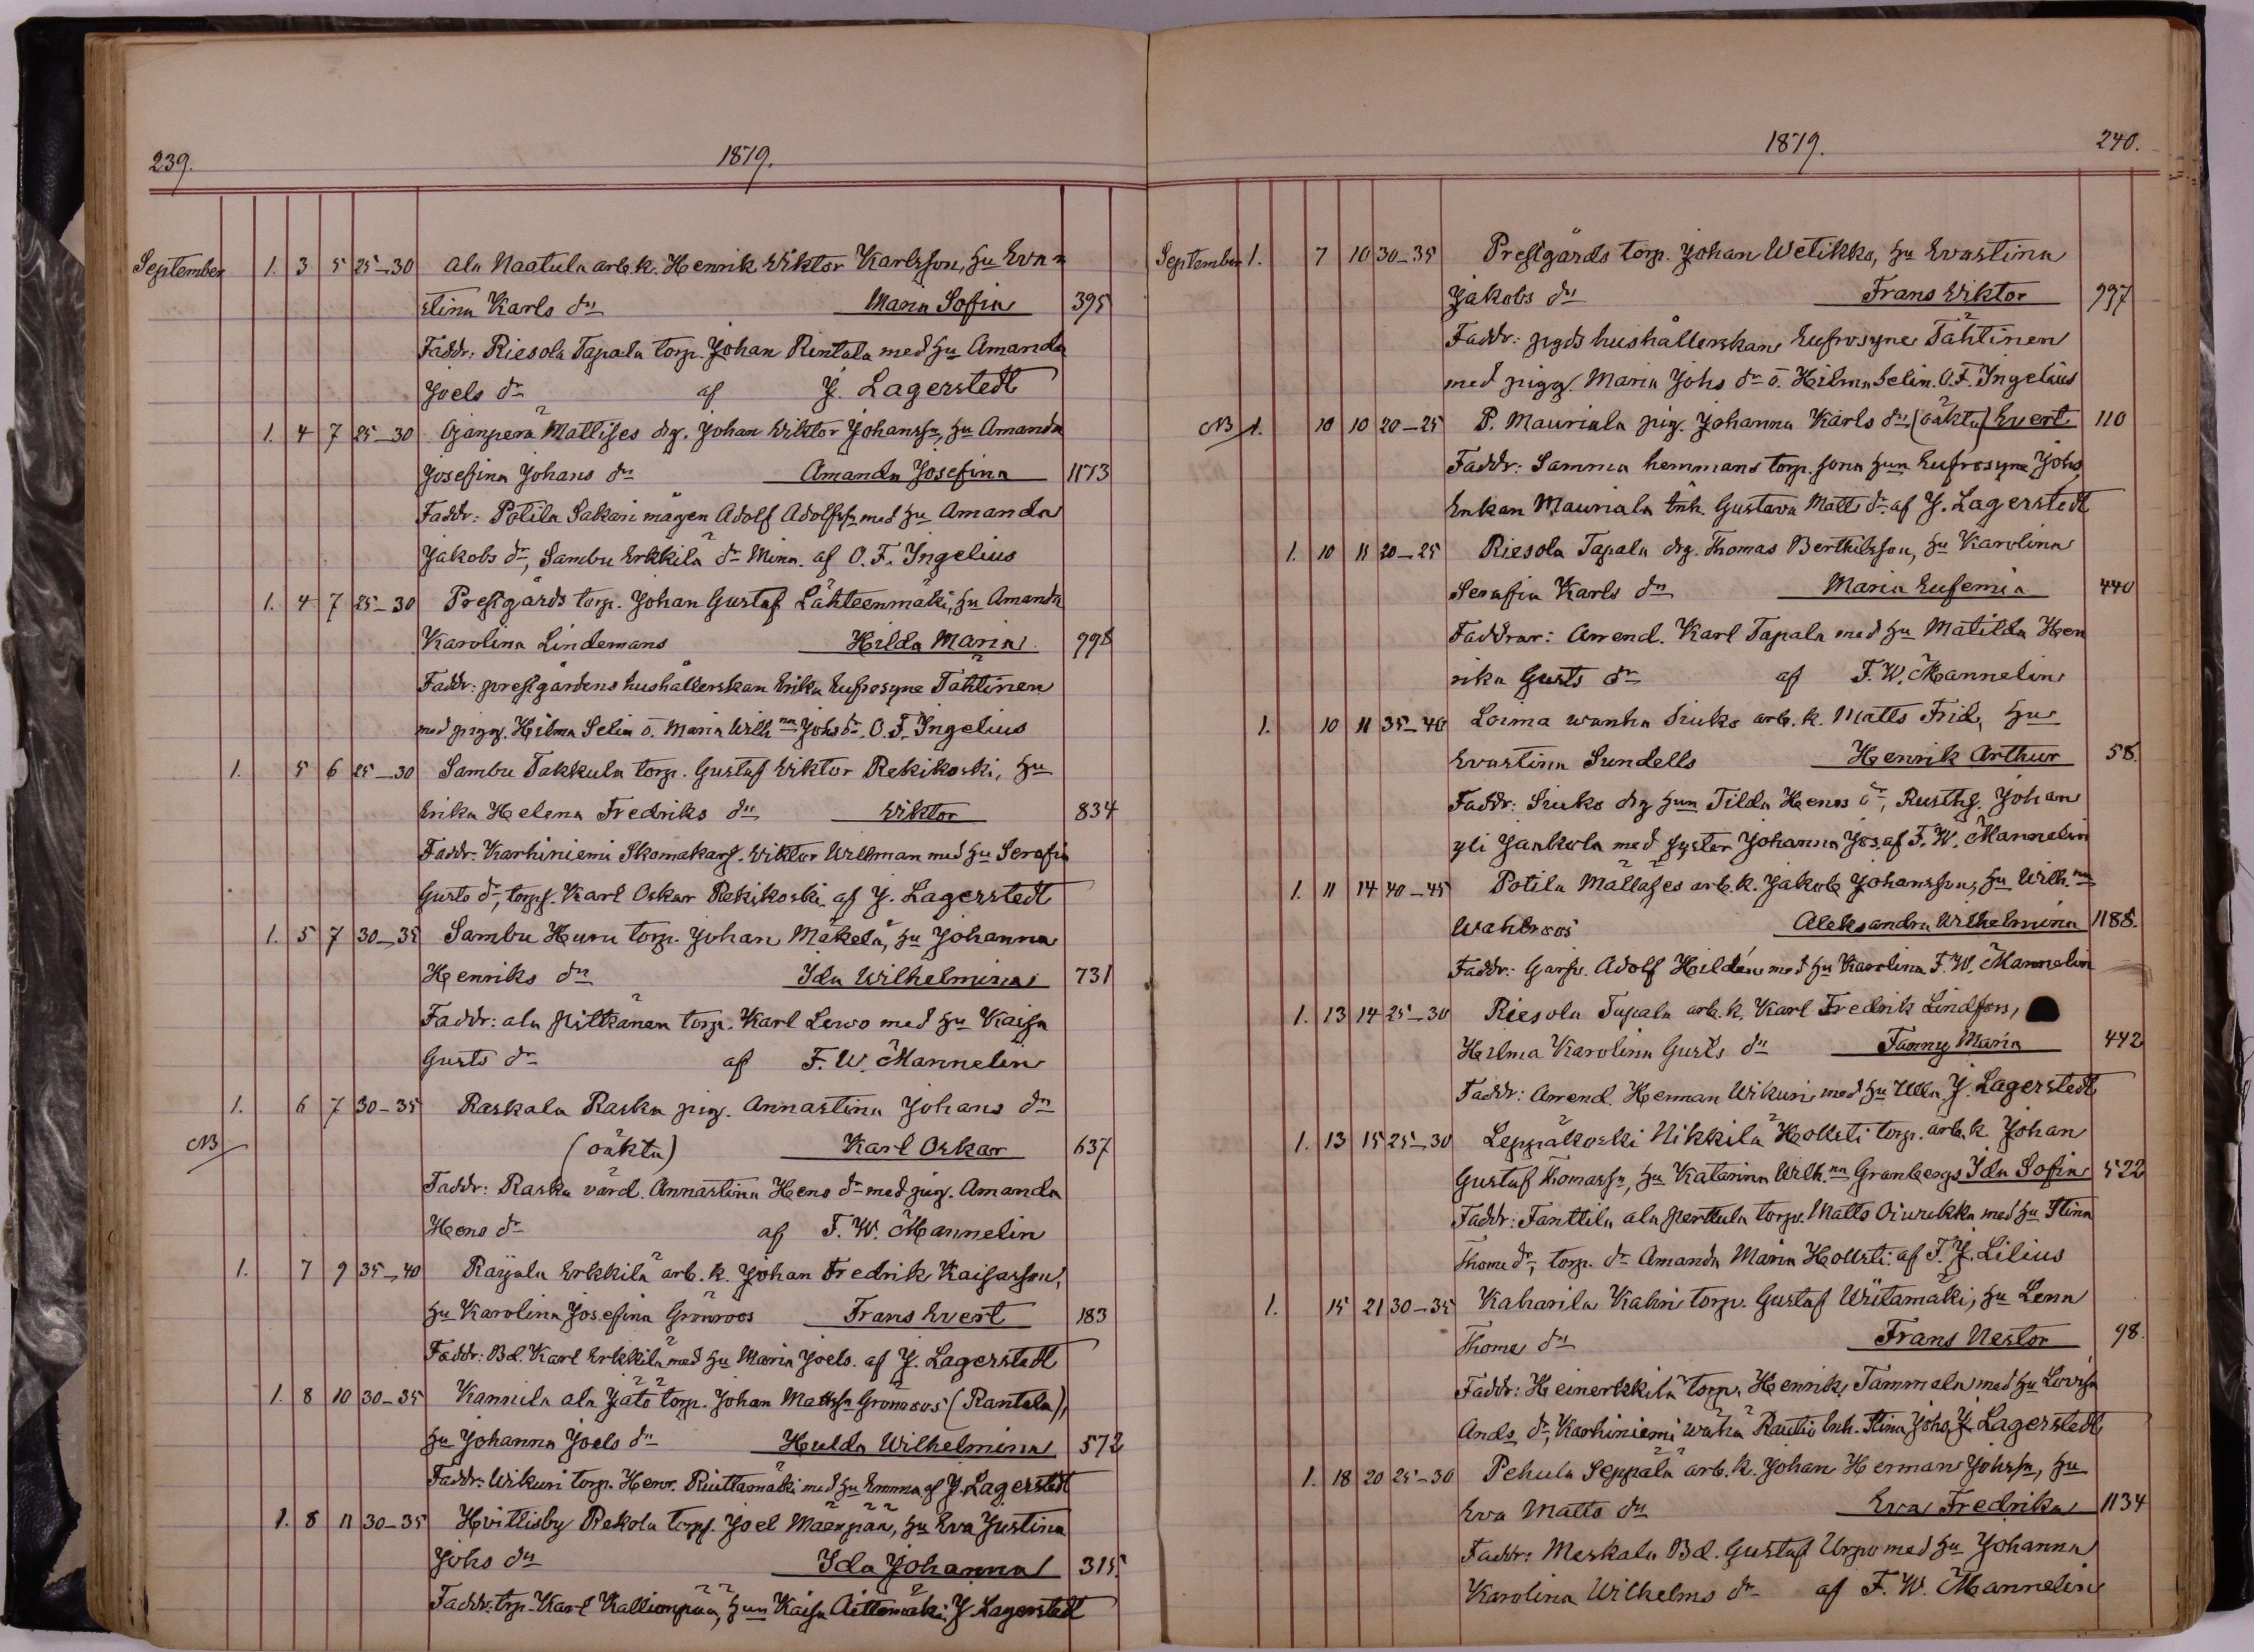 239.
1879.
September 1. 3 5 25-30 Ala Naatula arb. k. Henrik Wiktor Karlsson, hu Eva=
stina Karls dr Maria Sofia 395
Faddr: Riesola Tapala torp. Johan Rintala med hu Amanda
Joels dr af J. Lagerstedt
1. 4 7 25-30 Ojanperä Mattises drg. Johan Wiktor Johanssn, hu Amanda
Josefina Johans dr Amanda Josefina 1173
Faddr: Potila Sakari mågen Adolf Adolfssn med hu Amanda
Jakobs dr, Sambu Erkkilä dr Mina. af O. F. Ingelius
1. 4 7 25-30 Prestgårds torp. Johan Gustaf Lähteenmäki, hu Amanda
Karolina Lindemans Hilda Maria 998
Faddr: prestgårdens hushållerskan Erika Eufrosyne Tähtinen
med pigg. Hilma Selin o. Maria Wilh na Johs dr. O. F. Ingelius
1. 5 6 25-30 Sambu Takkula torp. Gustaf Wiktor Rekikoski, hu
Erika Helena Fredriks dr Wiktor 834
Faddr: Karhiniemi Skomakarf. Wiktor Willman med hu Serafia
Gusts dr, torps. Karl Oskar Rekikoski af J. Lagerstedt
1. 5 7 30-35 Sambu Huru torp. Johan Mäkelä, hu Johanna
Henriks dr Ida Wilhelmina 731
Faddr: ala Pitkänen torp. Karl Lewo med hu Kaisa
Gusts dr af F. W. Mannelin
1. 6 7 30-35 Raskala Raska pig. Annastina Johans dr
NB (oäkta) Karl Oskar 637
Faddr: Raska värd. Annastina Hens dr med pig. Amanda
Hens dr af F. W. Mannelin
1. 7 9 35-40 Raijala Erkkilä arb. k. Johan Fredrik Kaisasson,
hu Karolina Josefina Grönroos Frans Evert 183
Faddr: Bd. Karl Erkkilä med hu Maria Joels. af J. Lagerstedt
1. 8 10 30-35 Kannila ala Jätö torp. Johan Mattssn Grönroos (Rantala),
hu Johanna Joels dr Hulda Wilhelmina 572
Faddr: Wikuri torp. Henr. Riuttamäki med hu Emma af J. Lagerstedt
1. 8 11 30-35 Hvittisby Rekola torps. Joel Mäenpää, hu Eva Justina
Johs dr Ida Johanna 315.
Faddr: trp. Karl Kallionpää, hun Kaisa Aittomäki J. Lagerstedt
1879.
240.
September 1. 7 10 30-35 Prestgårds torp. Johan Wetikko, hu Evastina
Jakobs dr Frans Wiktor 997
Faddr: pgds hushållerskan Eufrosyne Tähtinen
med pigg. Maria Johs dr o. Hilma Selin. O. F. Ingelius
NB 1. 10 10 20-25 P. Mauriala pig. Johanna Karls dr (oäkta) Evert 110
Faddr: Samma hemmans torp. sons hun Eufrosyne Johs,
Enkan Mauriala Enk. Gustava Matts dr. af J. Lagerstedt
1. 10 11 20-25 Riesola Tapala drg. Thomas Berthilsson, hu Karolina
Serafia Karls dr Maria Eufemia 440
Faddrar: Arrend. Karl Tapala med hu Matilda Hen
rika Gusts dr af F. W. Mannelin
1. 10 11 35-40 Loima wanha Siuko arb. k. Matts Frid, hu
Evastina Sundells Henrik Arthur 58.
Faddr: Siuko drg hun Tilda Henrs dr, Rusthg. Johan
yli Jaakola med syster Johanna Jos. af F. W. Mannelin
1. 11 14 40-45 Potila Mällases arb. k. Jakob Johansson, hu Wilh. na
Wahlroos Aleksandra Wilhelmina 1188.
Faddr: Garfv. Adolf Hildén med hu Karolina F. W. Mannelin
1. 13 14 25-30 Riesola Tapala arb. k. Karl Fredrik Lindfors,
Hilma Karolina Gusts dr Fanny Maria 442
Faddr: Arrend. Herman Wikuri med hu Ulla J. Lagerstedt
1. 13 15 25-30 Leppäkoski Nikkilä Hollsti torp. arb. k. Johan
Gustaf Thomassn, hu Katarina Wilh. na Granbergs Ida Sofia 522
Faddr: Fanttila ala Perttula torp. Matts Oiwukka med hu Stina
Thome dr, torp. dr Amanda Maria Hollsti. af F. J. Lilius
1. 15 21 30-35 Kaharila Kahri torp. Gustaf Wiitamäki, hu Lena
Thome dr Frans Nestor 98.
Faddr: Heinerkkilä torp. Henrik Tammela med hu Lovisa
Ands dr, Karhiniemi wähä Rautio Enk. Stina Johs, J. Lagerstedt
1. 18 20 25-30 Pehula Seppälä arb. k. Johan Herman Johssn, hu
Eva Matts dr Eva Fredrika 1134
Faddr: Meskala Bd. Gustaf Urpo med hu Johanna
Karolina Wilhelms dr af F. W. Mannelin